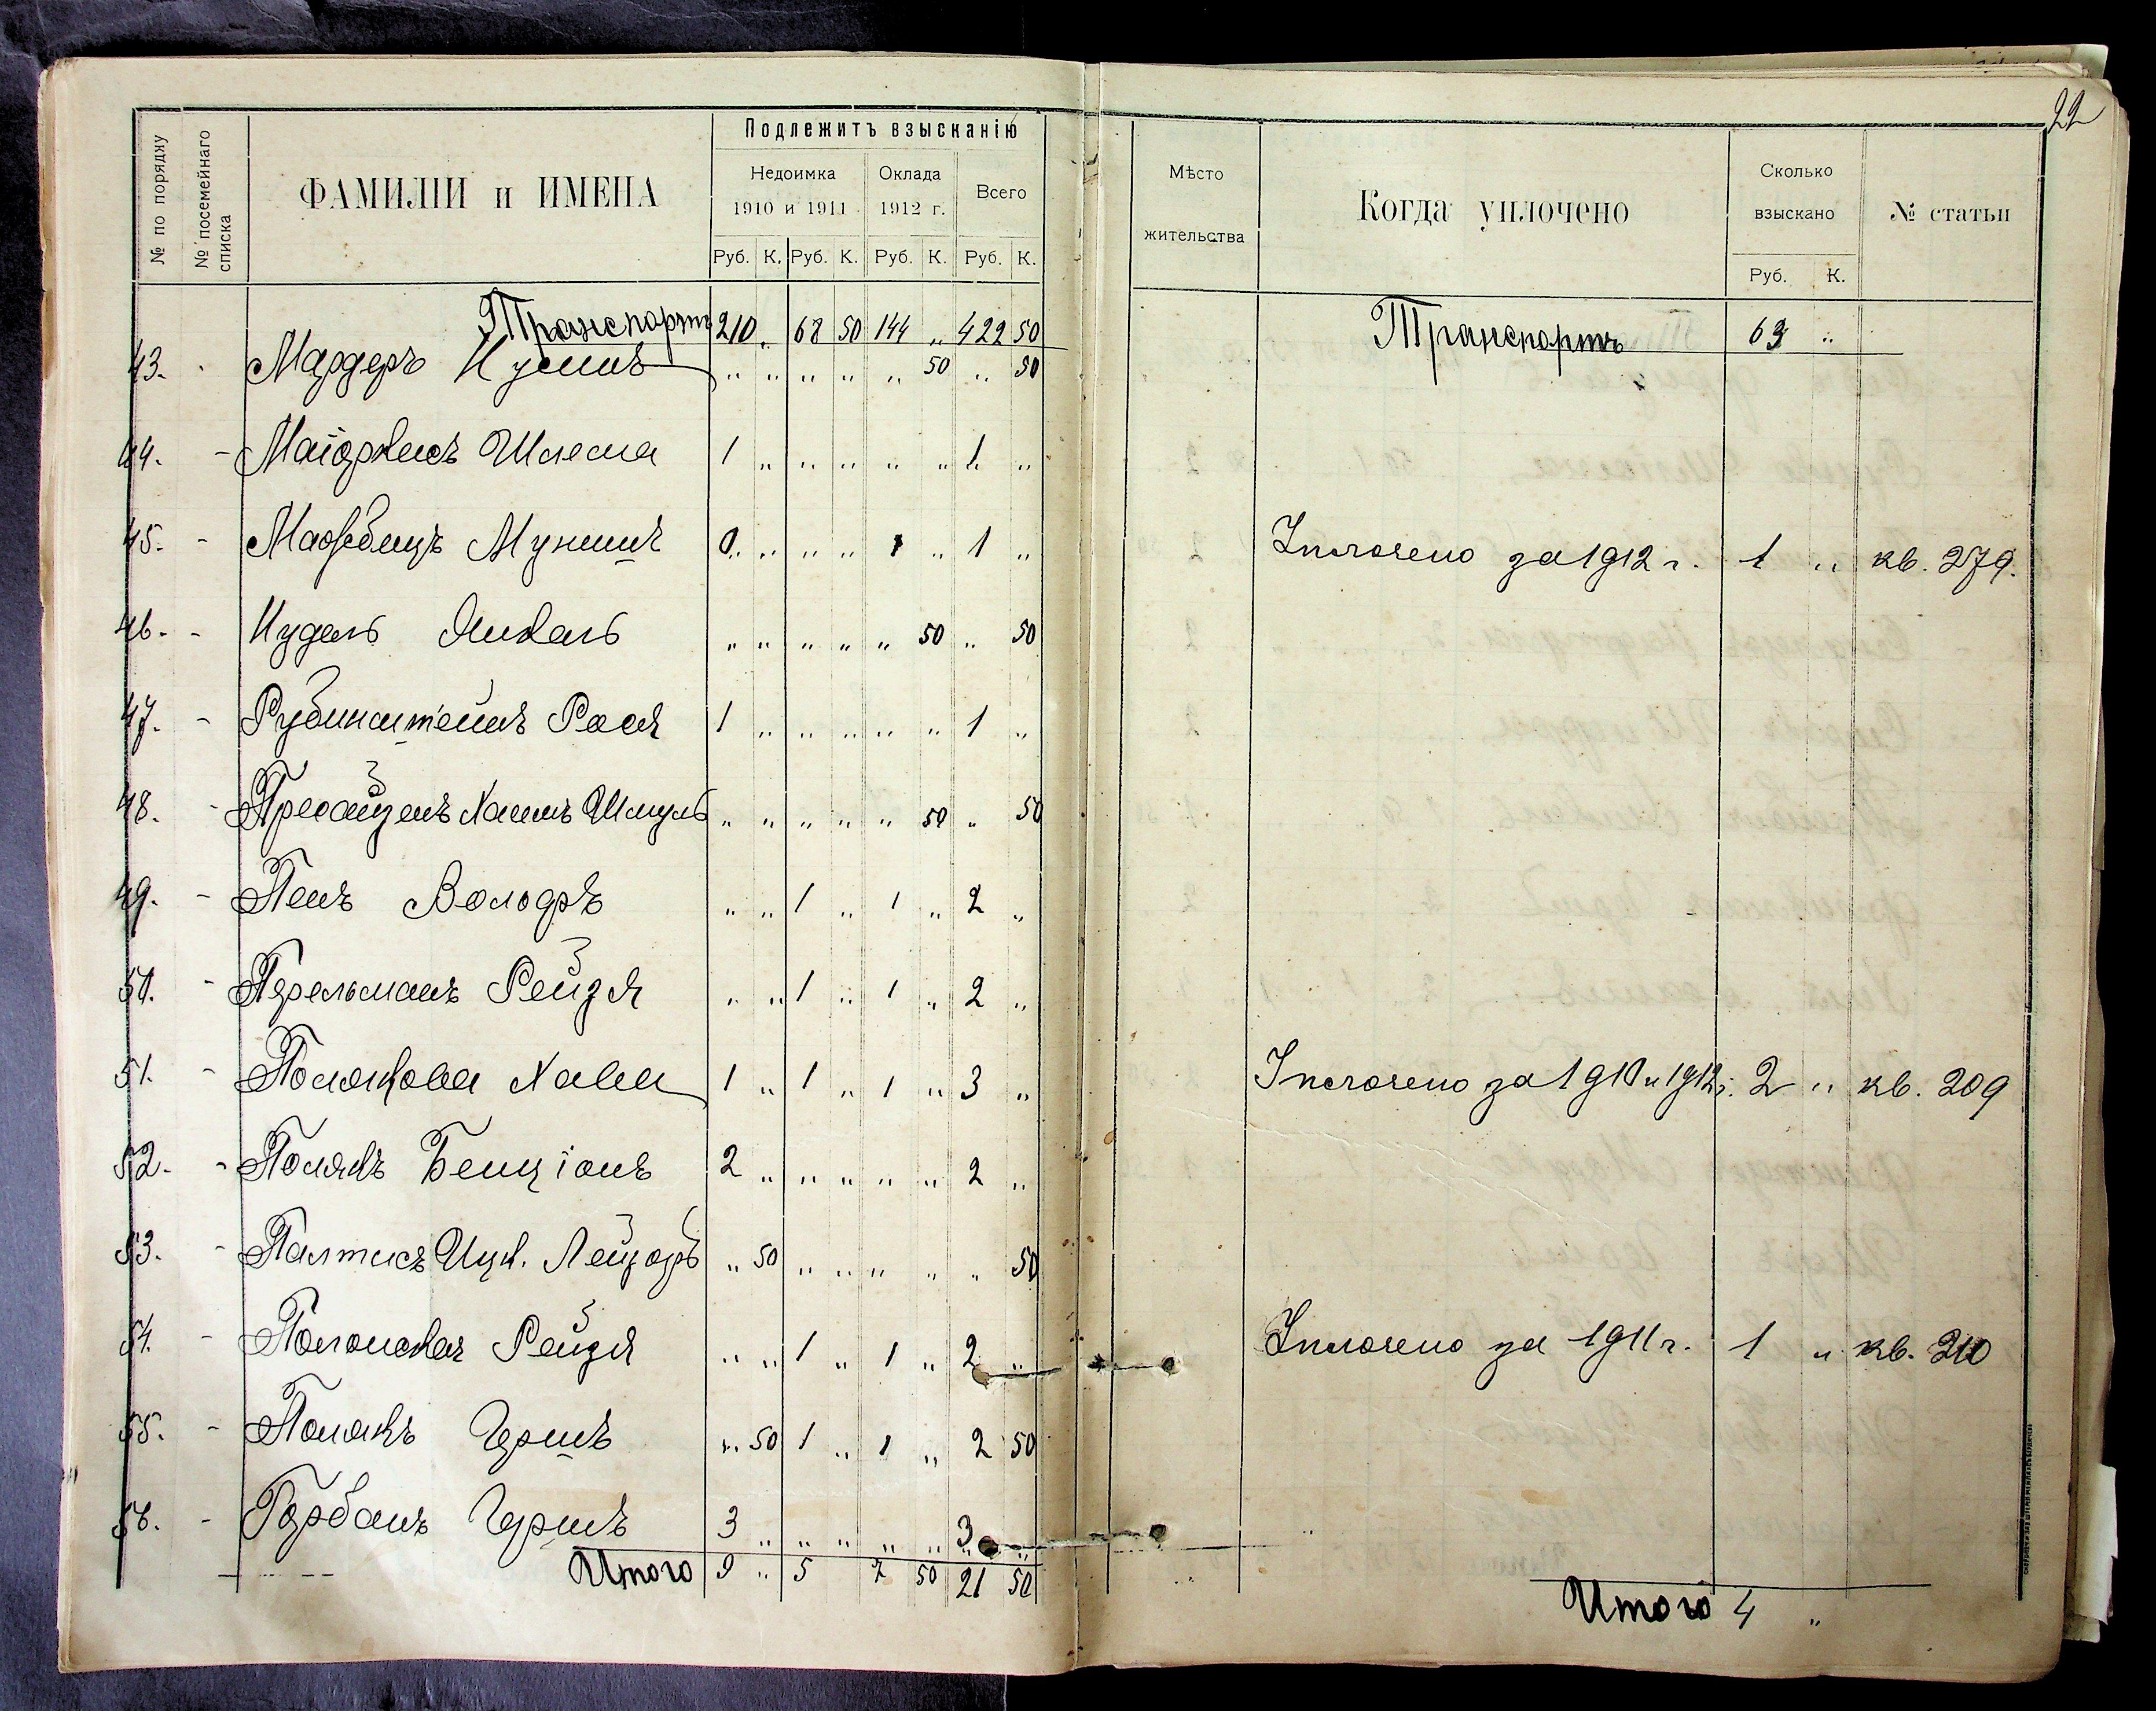 22
№ по порядку
№ посемейнаго списка
ФАМИЛІИ и ИМЕНА
Подлежитъ взысканію
Недоимка 1910 и 1911
Оклада 1912 г.
Всего
Руб. К. Руб. К. Руб. К. Руб. К.
Мѣсто жительства
Когда уплочено
Сколько взыскано
Руб. К.
№ статьи
Транспортъ 210 „ 68 50 144 „ 422 50 Транспортъ 63 „
43. - Мардеръ Нусинъ „ „ „ „ „ 50 „ 50
44. - Шлема 1 „ „ „ „ „ 1 „
45. - „ „ „ „ 1 „ 1 „ Уплочено за 1912 г. 1 „ кв. 279.
46. - Нудель Янкель „ „ „ „ „ 50 „ 50
47. - Рубинштейнъ Рося 1 „ „ „ „ „ 1 „
48. - Хаимъ Шмуль „ „ „ „ „ 50 „ 50
49. - Пенъ „ „ 1 „ 1 „ 2 „
50. - Перельманъ Рейзя „ „ 1 „ 1 „ 2 „
51. - Полякова Хава 1 „ 1 „ 1 „ 3 „ Уплочено за 1910 и 1912 г. 2 „ кв. 209
52. - Полякъ Бенціонъ 2 „ „ „ „ „ 2 „
53. - Палтисъ Ицк. Лейзоръ „ 50 „ „ „ „ „ 50
54. - Полонская Рейзя „ „ 1 „ 1 „ 2 „ Уплочено за 1911 г. 1 „ кв. 210
55. - Полякъ Гершъ „ 50 1 „ 1 „ 2 50
56. - Горбанъ Гершъ 3 „ „ „ „ „ 3 „
Итого 9 „ 5 7 50 21 50
Итого 4 „